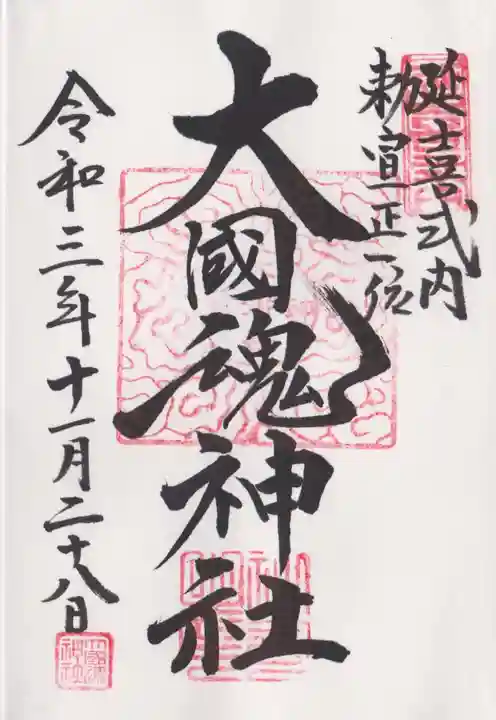 延喜式内
勅宣正一位
大國魂神社
令和三年十一月二十八日